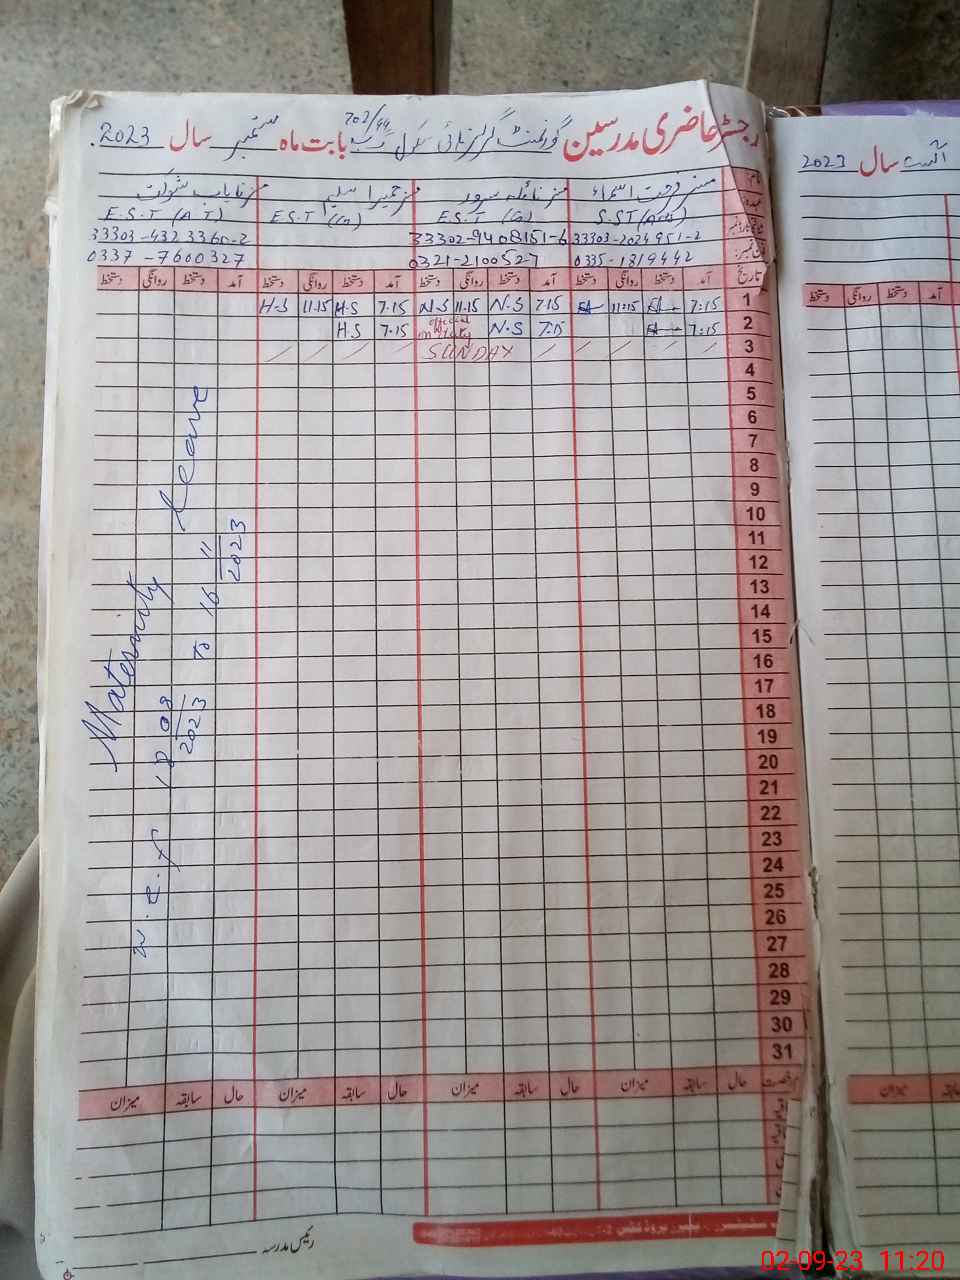 رجسٹر حاضری مدرسین گورنمنٹ گرلز ہائی سکول بابت ماہ ستمبر سال 2023
نام:
مسز نائلہ سرور مسز حمیرا سلیم مسز نایاب شوکت
S.ST (Arts) E.S.T (G) E.S.T (G) E.S.T (A.T)
33303-2024951-2 33302-9408151-6
0335-1819442 0321-2100527 0337-7600327
تاریخ آمد دستخط روانگی دستخط آمد دستخط روانگی دستخط آمد دستخط روانگی دستخط آمد دستخط روانگی دستخط
1 7:15 11:15 7.15 N.S 11.15 N.S 7.15 H.S 11.15 H.S
2 7:15 7.15 N.S official 7.15 H.S
3 SUNDAY
4
5
6
7
8
9
10
11
12
13
14
15
16
17
18
19
20
21
22
23
24
25
26
27
28
29
30
31
Maternity Leave
w.e.f 18 08 2023 to 16 11 2023
رخصت حال سابقہ میزان حال سابقہ میزان حال سابقہ میزان حال سابقہ میزان
رئیس مدرسہ
اگست سال 2023
آمد دستخط روانگی دستخط
میزان
02-09-23 11:20